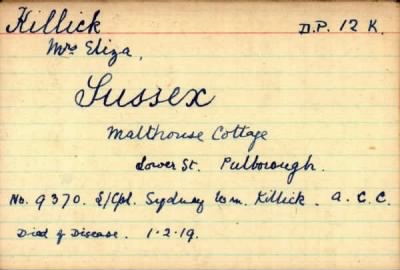 Killick D.P. 12 K.
Mrs Eliza,
Sussex
Malthouse Cottage
Lower St. Pulborough.
No. 9370. L/Cpl. Sydney Wm. Killick. A.C.C.
Died of Disease. 1.2.19.